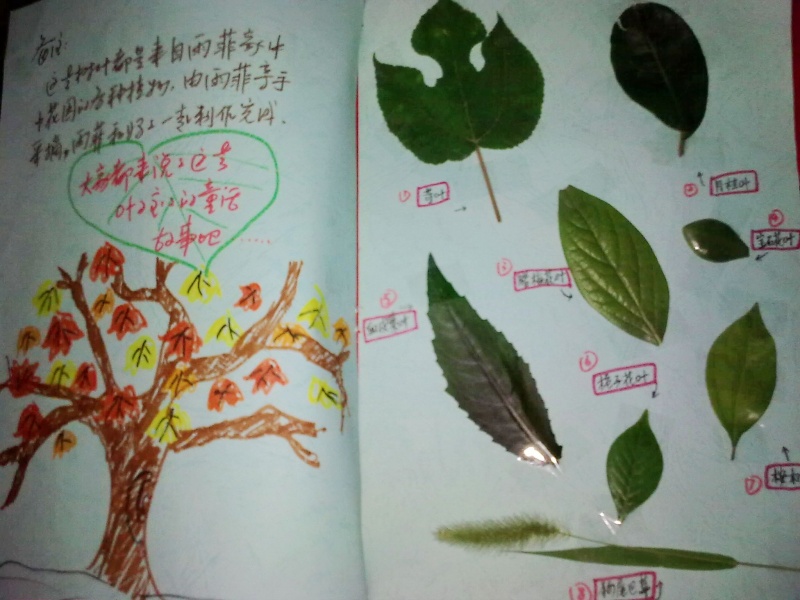 备注:
这些树叶都是来自雨菲家中
花园的各种植物,由雨菲亲手
采摘,雨菲和妈妈一起制作完成.
大家都来说说这些
叶子们的童话
故事吧......
①
②
月桂叶
④
宝石花叶
③
腊梅花叶
⑤
⑥
栀子花叶
⑦
⑧
狗尾巴草